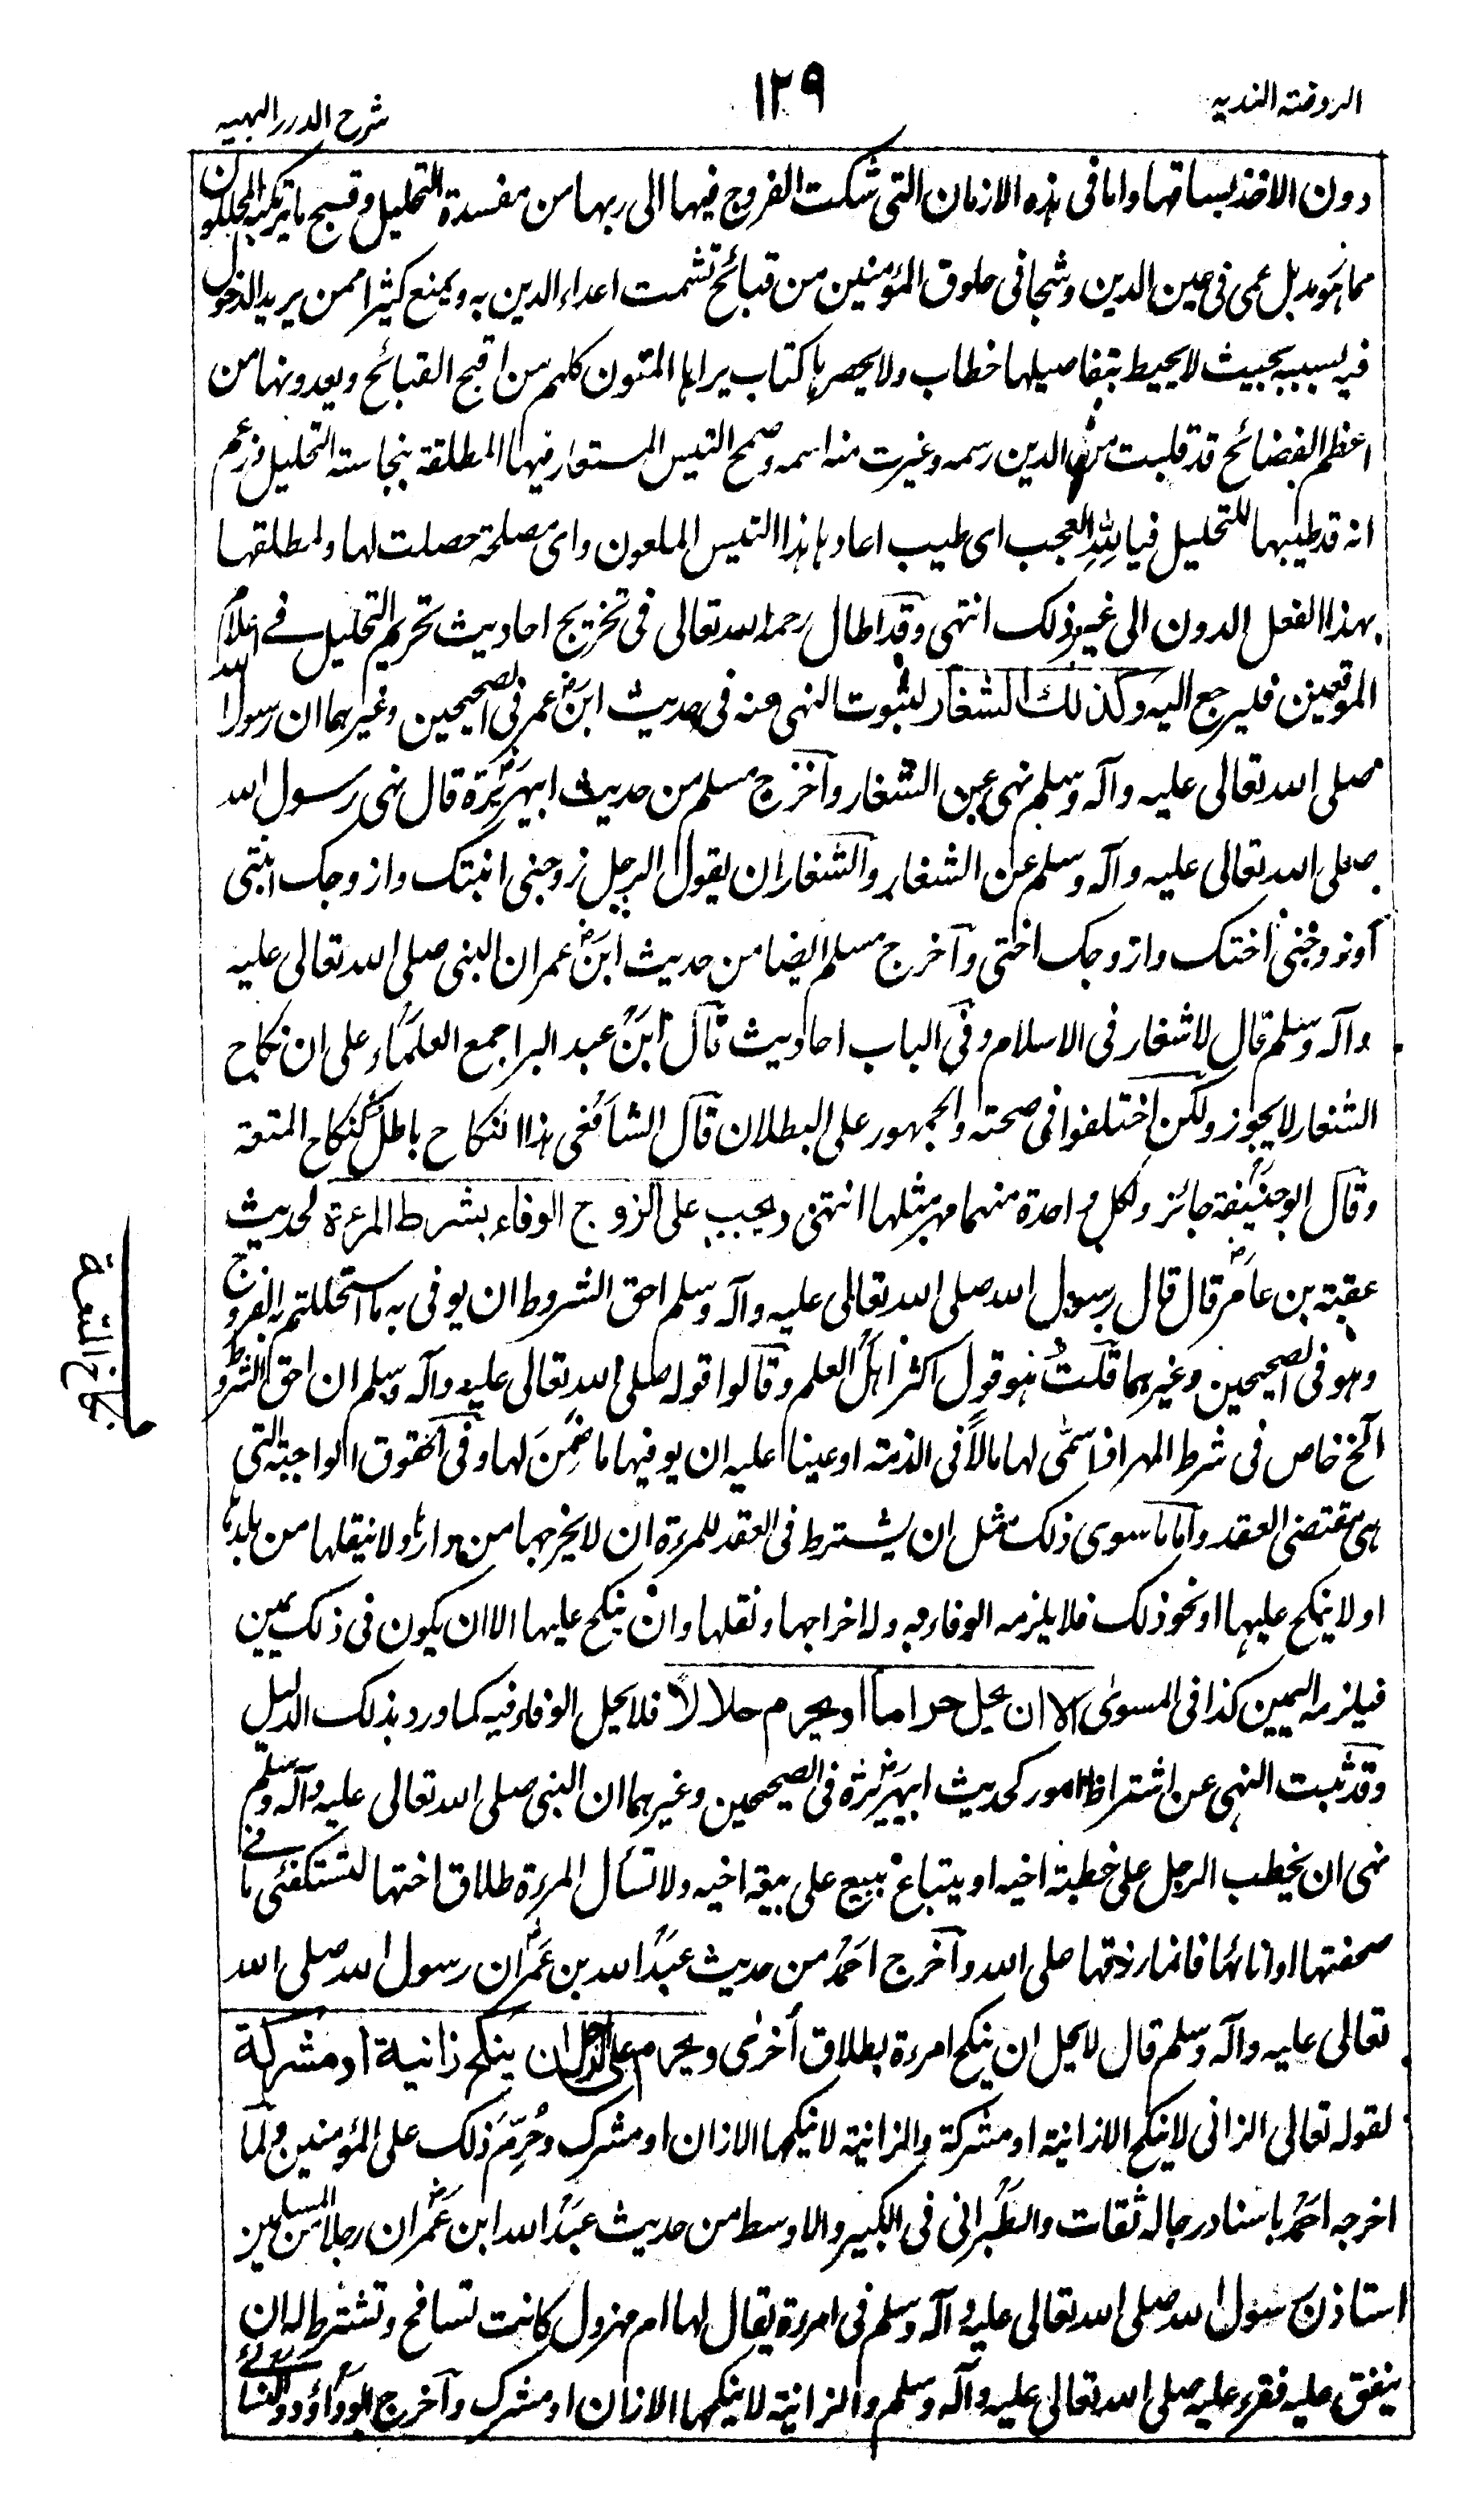 الروضة الندية
١٢٩
شرح الدرر البهية
دون الاخذ بساقها واما فى هذه الازمان التى شكت الفروج فيها الى ربها من مفسدة التحليل وقبح ما يرتكبه المحللون
مما هو رمد بل عمى فى عين الدين وشجا فى حلوق المؤمنين من قبائح تشمت اعداء الدين به ويمنع كثيرا ممن يريد الدخول
فيه بسببه بحيث لا يحيط بتفاصيلها خطاب ولا يحصرها كتاب يراها المؤمنون كلهم من اقبح القبائح ويعدونها من
اعظم الفضائح قد قلبت من الدين رسمه وغيرت منه اسمه وضمخ التيس المستعار فيها المطلقة بنجاسة التحليل وزعم
انه قد طيبها للتحليل فيا لله العجب اى طيب اعارها هذا التيس الملعون واى مصلحة حصلت لها ولمطلقها
بهذا الفعل الدون الى غير ذلك انتهى وقد اطال رحمه الله تعالى فى تخريج احاديث تحريم التحليل فى اعلام
الموقعين فليرجع اليه وكذلك الشغار لثبوت النهى عنه فى حديث ابن عمر فى الصحيحين وغيرهما ان رسول الله
صلى الله تعالى عليه وآله وسلم نهى عن الشغار وآخرج مسلم من حديث ابيهريرة قال نهى رسول الله
صلى الله تعالى عليه وآله وسلم عن الشغار والشغار ان يقول الرجل زوجنى ابنتك وازوجك ابنتى
آو زوجنى اختك وازوجك اختى وآخرج مسلم ايضا من حديث ابن عمر ان النبى صلى الله تعالى عليه
وآله وسلم قال لا شغار فى الاسلام وفى الباب احاديث قال ابن عبد البر اجمع العلماء على ان نكاح
الشغار لا يجوز ولكن اختلفوا فى صحته والجمهور على البطلان قال الشافعى هذا النكاح باطل كنكاح المتعة
وقال ابو حنيفة جائز ولكل واحدة منهما مهر مثلها انتهى ويجب على الزوج الوفاء بشرط المرءة لحديث
عقبة بن عامر قال قال رسول الله صلى الله تعالى عليه وآله وسلم احق الشروط ان يوفى به ما استحللتم به الفروج
وهو فى الصحيحين وغيرهما قلت هو قول اكثر اهل العلم وقالوا قوله صلى الله تعالى عليه وآله وسلم ان احق الشروط
الخ خاص فى شرط المهر اذا سمى لها مالا فى الذمة او عينا عليه ان يوفيها ما ضمن لها وفى الحقوق الواجبة التى
هى مقتضى العقد واما ما سوى ذلك مثل ان يشترط فى العقد للمرءة ان لا يخرجها من دارها ولا ينقلها من بلدها
او لا ينكح عليها او نحو ذلك فلا يلزمه الوفاء به وله اخراجها ونقلها وان ينكح عليها الا ان يكون فى ذلك يمين
فيلزمه اليمين كذا فى المسوى الا ان يحل حراما او يحرم حلالا فلا يحل الوفاء فيه كما ورد بذلك الدليل
وقد ثبت النهى عن اشتراط امور كحديث ابيهريرة فى الصحيحين وغيرهما ان النبى صلى الله تعالى عليه وآله وسلم
نهى ان يخطب الرجل على خطبة اخيه او يبتاع ببيع على بيعه اخيه ولا تسأل المرءة طلاق اختها لتستكفئ ما فى
صحفتها او انائها فانما رزقها على الله وآخرج احمد من حديث عبد الله بن عمر ان رسول الله صلى الله
تعالى عليه وآله وسلم قال لا يحل ان ينكح امرءة بطلاق أخرى ويحرم على الرجل ان ينكح زانية او مشركة
لقوله تعالى الزانى لا ينكح الا زانية او مشركة والزانية لا ينكحها الا زان او مشرك وحرم ذلك على المؤمنين ولما
اخرجه احمد باسناد رجاله ثقات والطبرانى فى الكبير والاوسط من حديث عبد الله ابن عمر ان رجلا من المسلمين
استاذن رسول الله صلى الله تعالى عليه وآله وسلم فى امرءة يقال لها ام مهزول كانت تسافح وتشترط له ان
ينفق عليه فقرء عليه صلى الله تعالى عليه وآله وسلم والزانية لا ينكحها الا زان او مشرك وآخرج ابو داؤد والنسائى
نكاح المتعة